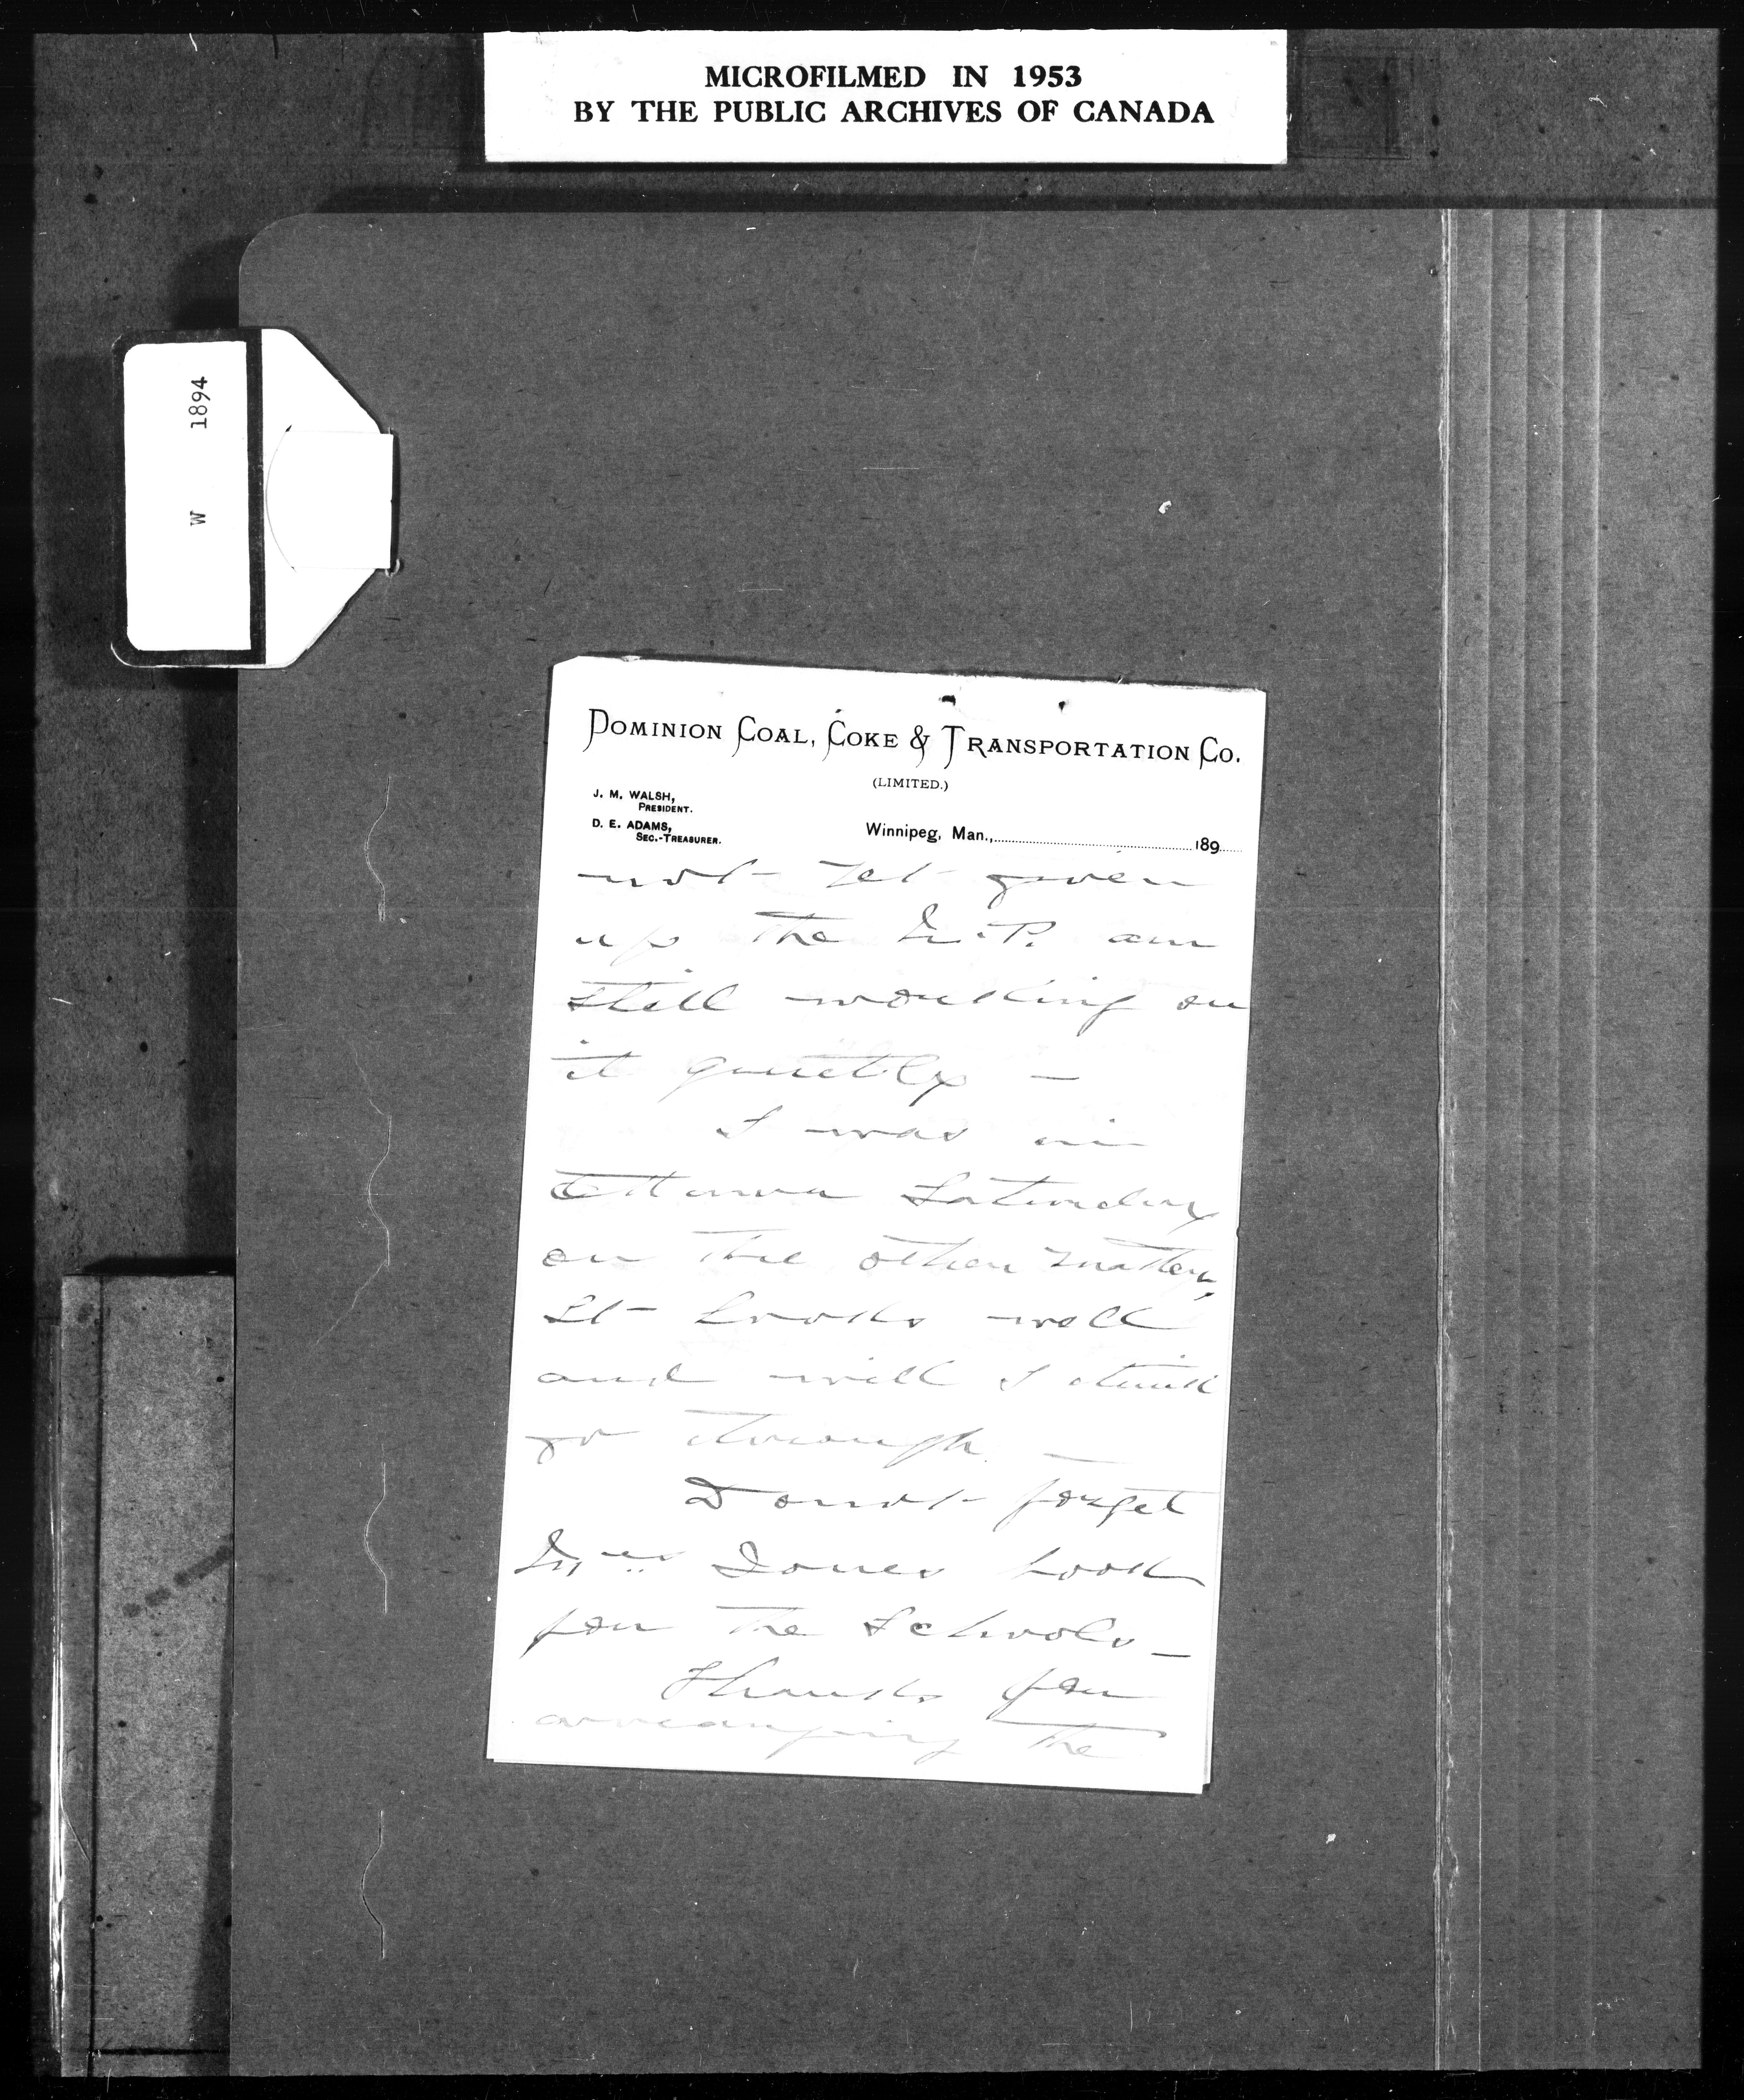 MICROFILMED IN 1953
BY THE PUBLIC ARCHIVES OF CANADA
W 1894
DOMINION COAL, COKE & TRANSPORTATION CO.
(LIMITED.)
J. M. WALSH,
PRESIDENT.
D. E. ADAMS,
SEC.-TREASURER.
Winnipeg, Man., 189
not yet given
up the M.P. am
still working on
it quietly —
I was in
Ottawa Saturday
on the other matter,
It looks well
and will I think
go through —
Do not forget
Mrs Jones book
for the Schools —
Thanks for
arranging the